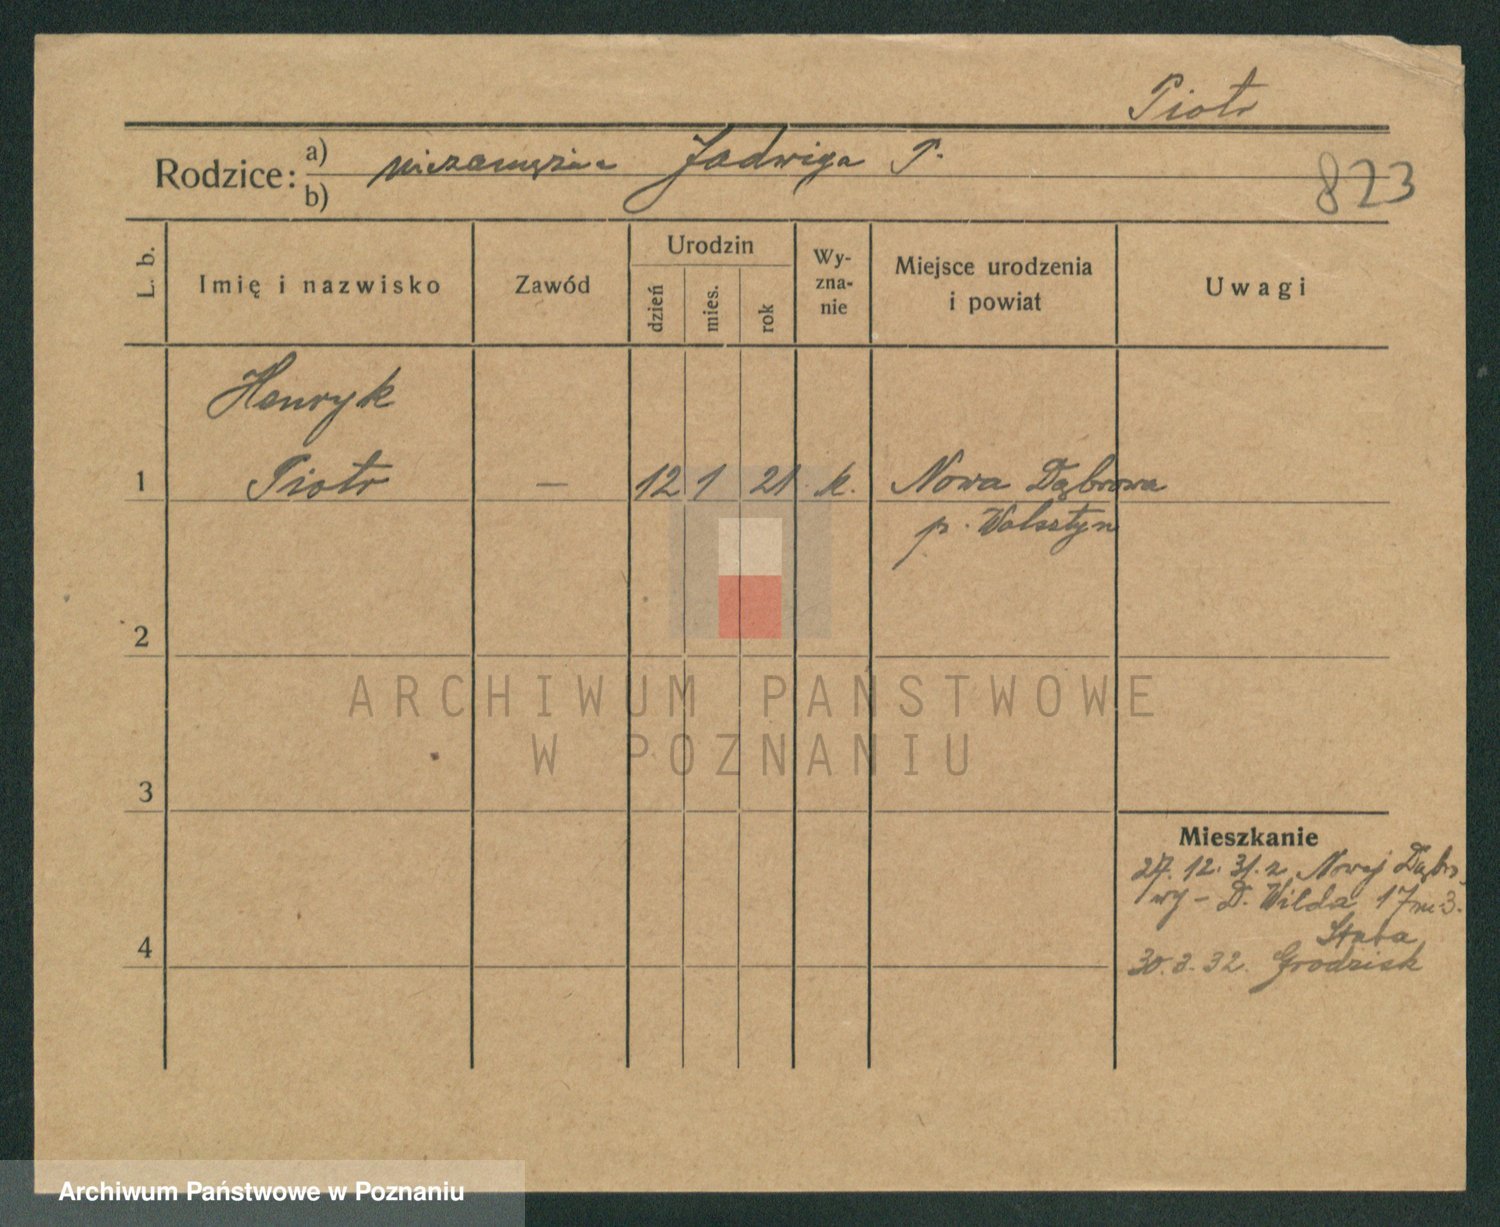 Piotr
Rodzice: a) niezamężna Jadwiga P.
b)
823
L. b.
Imię i nazwisko
Zawód
Urodzin
dzień
mies.
rok
Wy-
zna-
nie
Miejsce urodzenia
i powiat
Uwagi
Henryk
1 Piotr — 12 1 21 k. Nowa Dąbrowa
p. Wolsztyn
2
3
4
Mieszkanie
27. 12. 31. z Nowej Dąbro-
wy – D. Wilda 17 m. 3.
30. 3. 32. Grodzisk
ARCHIWUM PAŃSTWOWE
W POZNANIU
Archiwum Państwowe w Poznaniu